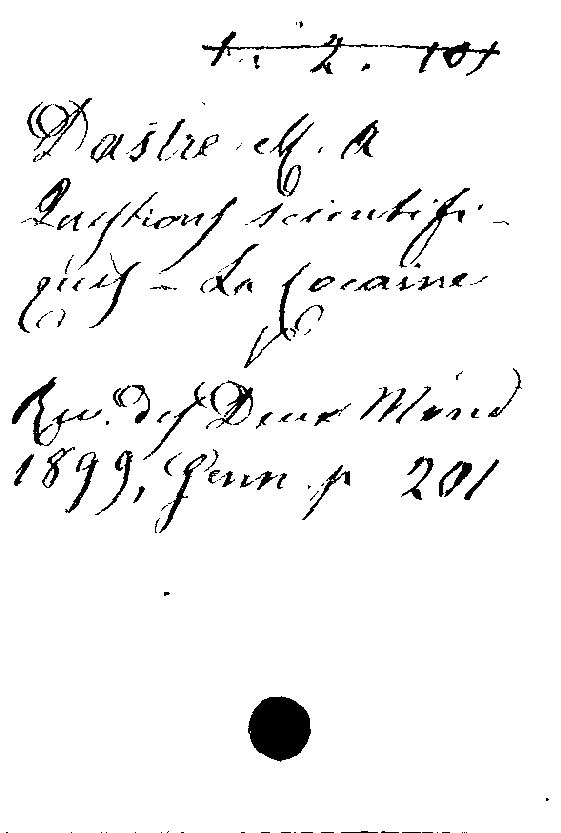 Dastre M. A
Questions scientifi-
ques - La Cocaine
Rev. des Deux Mond
1899, Genn. p 201